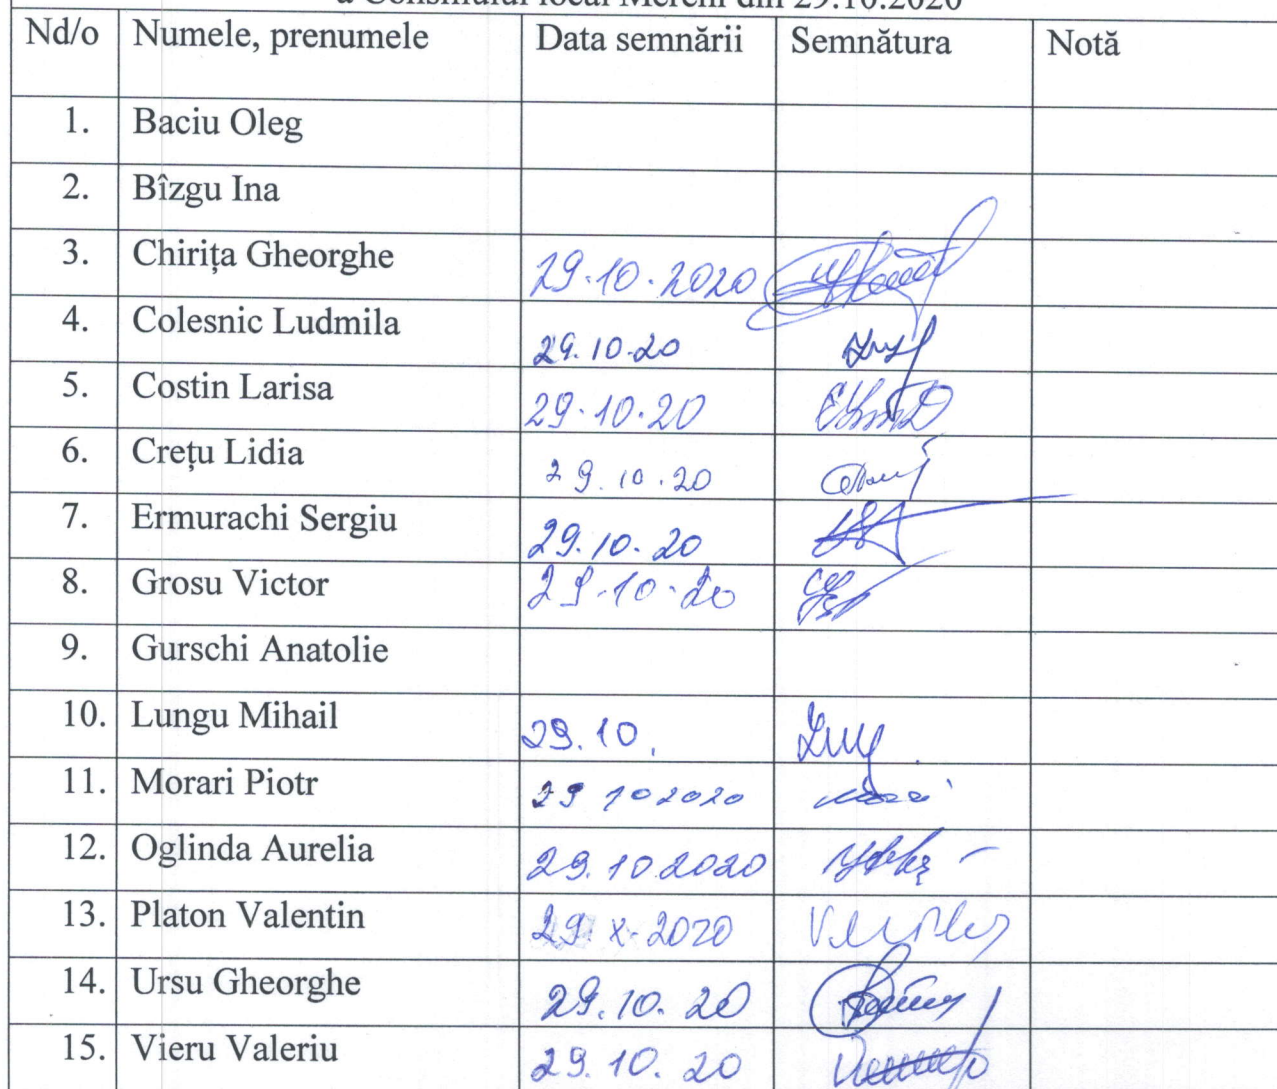 a Consiliului local Mereni din 29.10.2020
Nd/o Numele, prenumele Data semnării Semnătura Notă
1. Baciu Oleg
2. Bîzgu Ina
3. Chirița Gheorghe 29.10.2020
4. Colesnic Ludmila 29.10.20
5. Costin Larisa 29.10.20
6. Crețu Lidia 29.10.20
7. Ermurachi Sergiu 29.10.20
8. Grosu Victor 29.10.20
9. Gurschi Anatolie
10. Lungu Mihail 29.10.
11. Morari Piotr 29 10 2020
12. Oglinda Aurelia 29.10.2020
13. Platon Valentin 29. X. 2020
14. Ursu Gheorghe 29.10.20
15. Vieru Valeriu 29.10.20